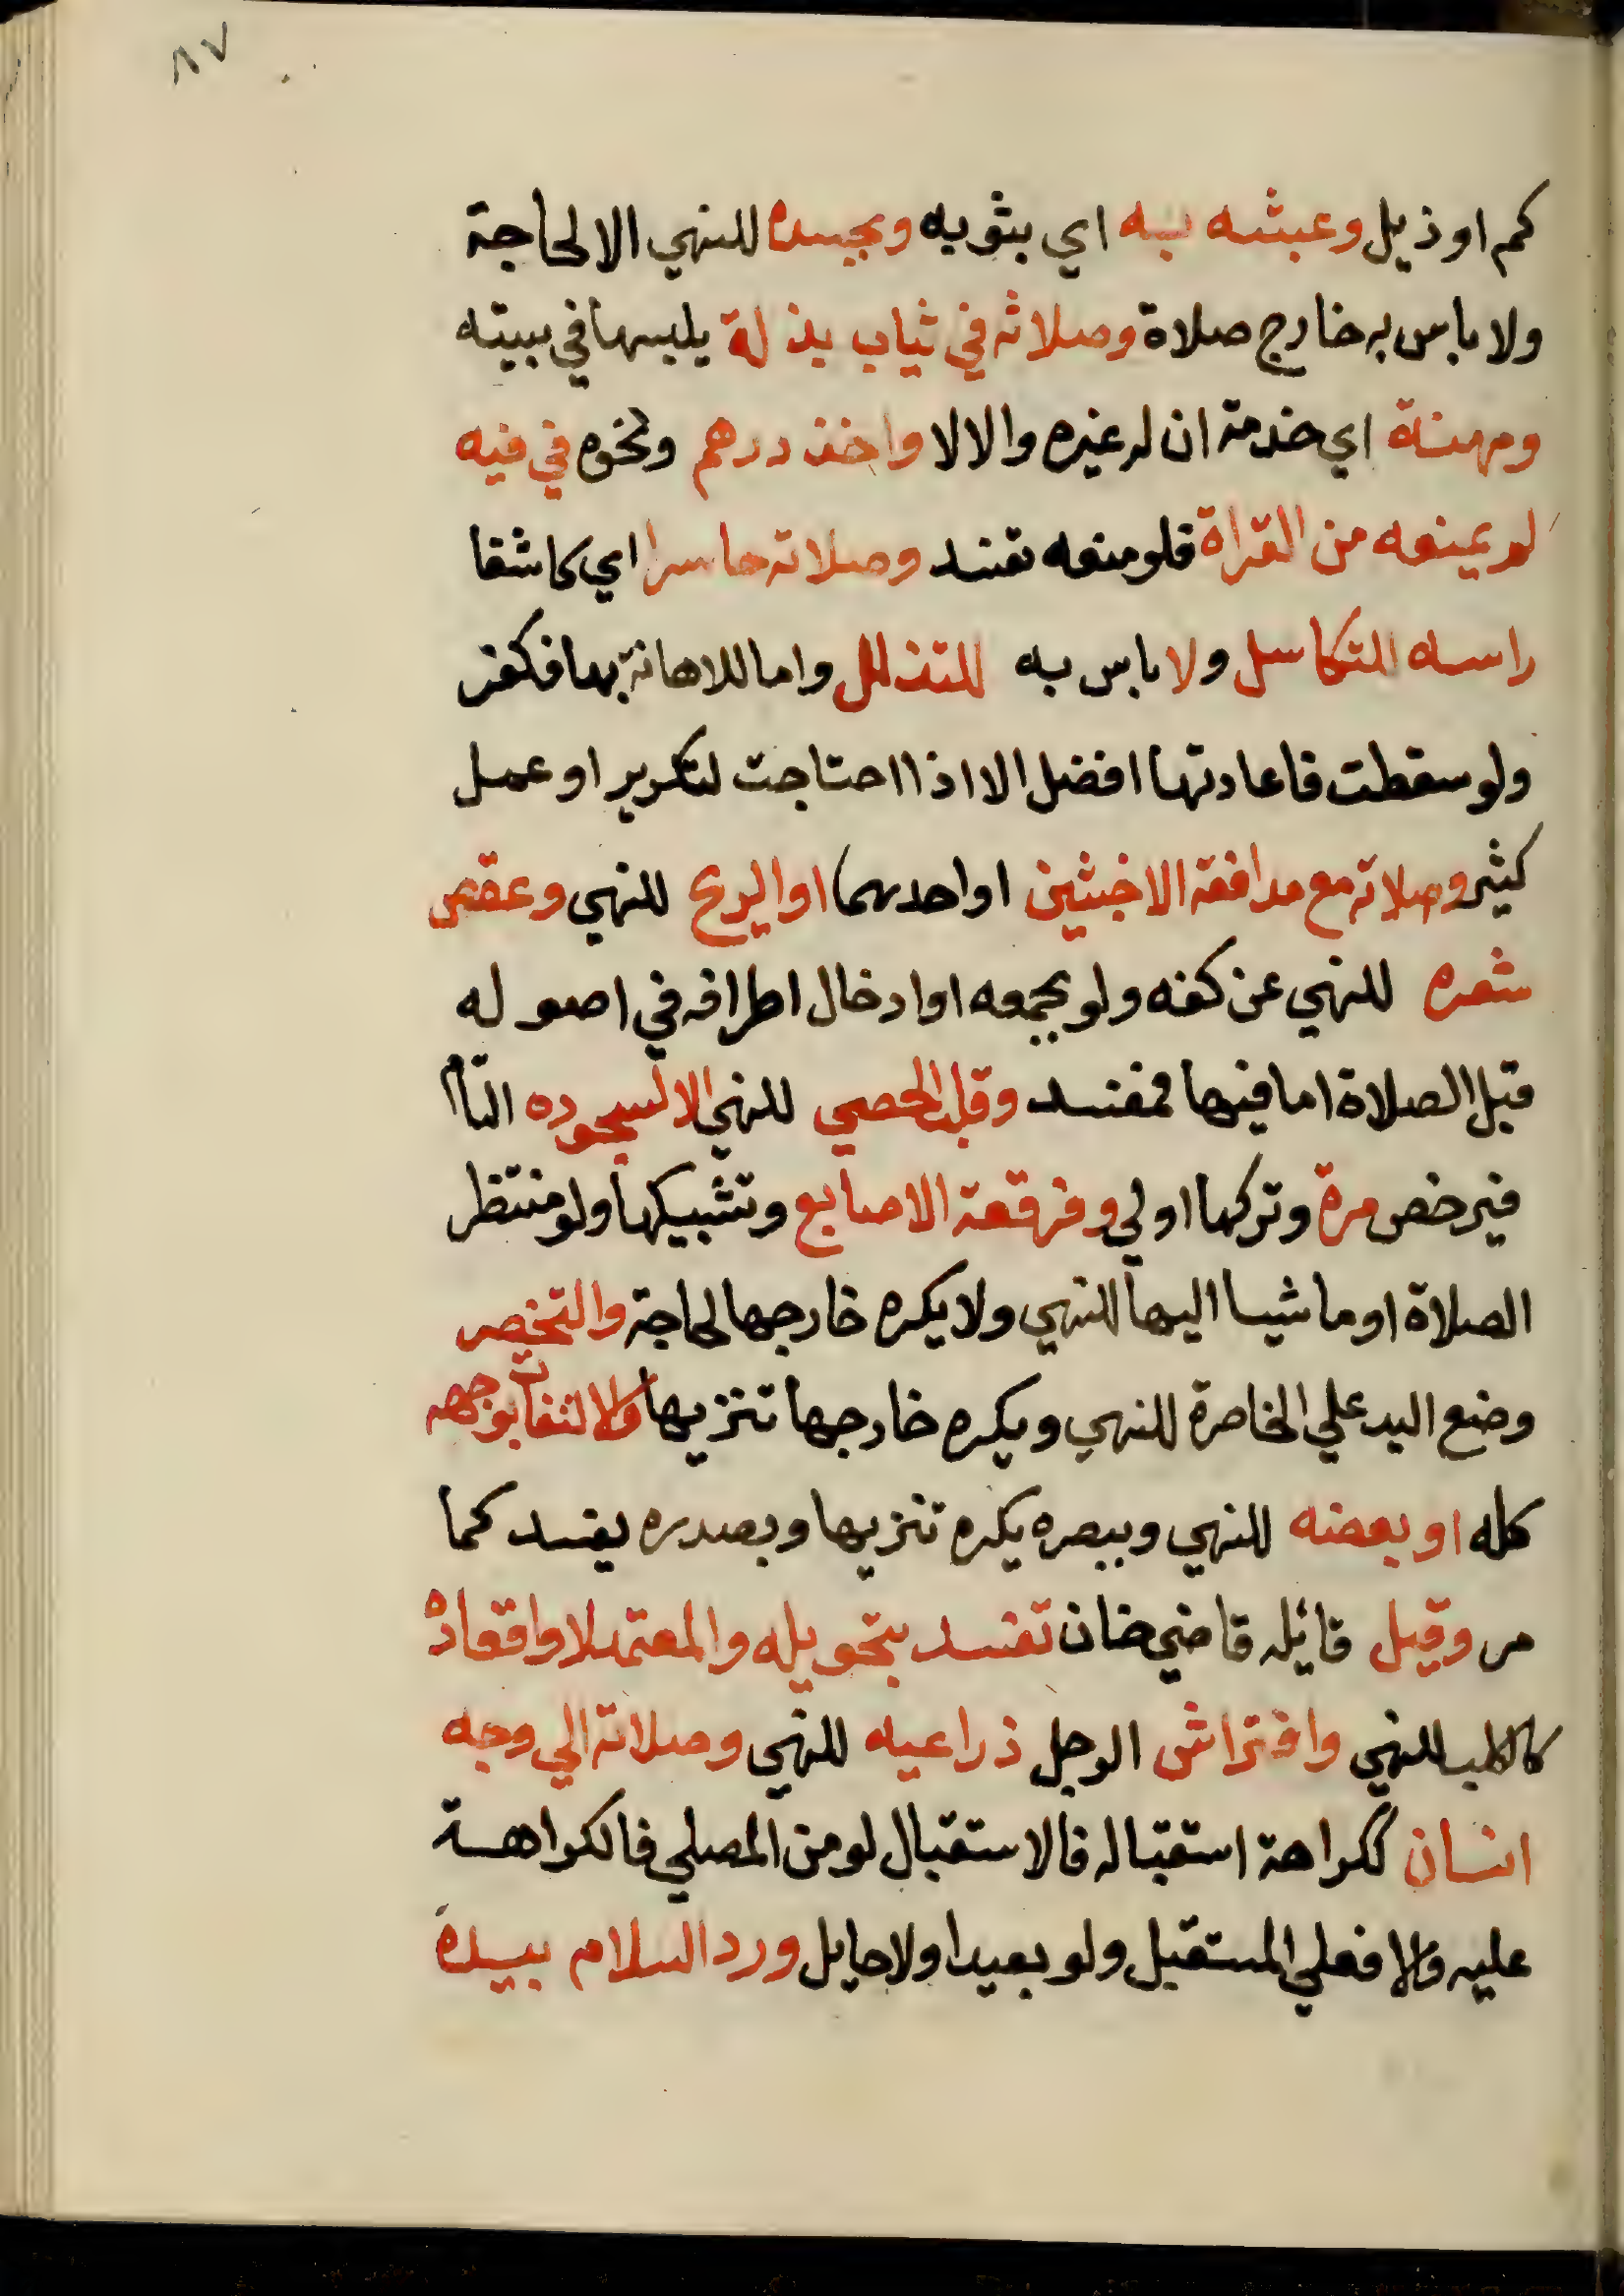 ٨٧
كم او ذيل وعبثه به اي بثوبه وبجسده للنهي الا لحاجة
ولا باس به خارج صلاة وصلاته في ثياب بذلة يلبسها في بيته
ومهنة اي خدمة ان له غيره والا لا واخذ درهم ونحوه في فيه
لم يمنعه من القراة فلو منعه تفسد وصلاته حاسرا اي كاشفا
راسه للتكاسل ولا باس به للتذلل واما للاهانة بها فكفر
ولو سقطت فاعادتها افضل الا اذا احتاجت لتكرير او عمل
كثير وصلاته مع مدافعة الاخبثين او احدهما او الريح للنهي وعقص
شعره للنهي عن كفه ولو بجمعه او ادخال اطرافه في اصوله
قبل الصلاة اما فيها فمفسد وقلب الحصي للنهي الا لسجوده التام
فيرخص مرة وتركها اولي وفرقعة الاصابع وتشبيكها ولو منتظر
الصلاة او ماشيا اليها للنهي ولا يكره خارجها لحاجة والتخصر
وضع اليد علي الخاصرة للنهي ويكره خارجها تنزيها والالتفات بوجهه
كله او بعضه للنهي وببصره يكره تنزيها وبصدره يفسد كما
مر وقيل قائله قاضي خان تفسد بتحويله والمعتمد لا واقعاؤه
كالكلب للنهي وافتراش الرجل ذراعيه للنهي وصلاته الي وجه
انسان ككراهة استقباله فالاستقبال لو من المصلي فالكراهة
عليه والا فعلي المستقبل ولو بعيدا ولا حايل ورد السلام بيده